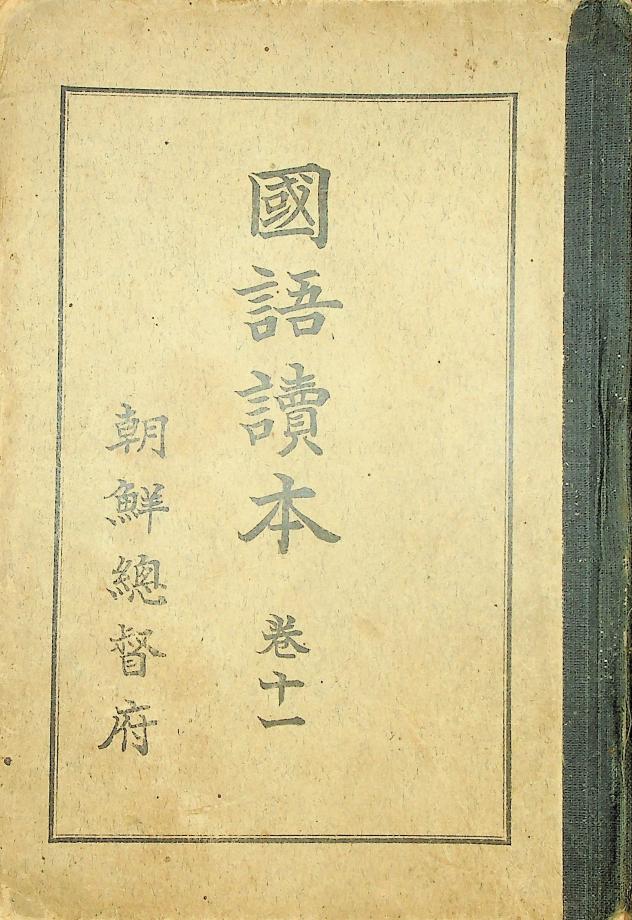 國語讀本 卷十一
朝鮮總督府